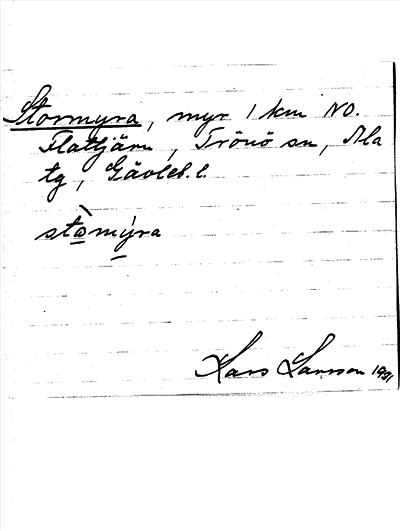 Stormyra, myr 1 km NO.
Flattjärn, Trönö sn, Ala
tg, Gävleb. l.
stòmýra
Lars Larsson 1991